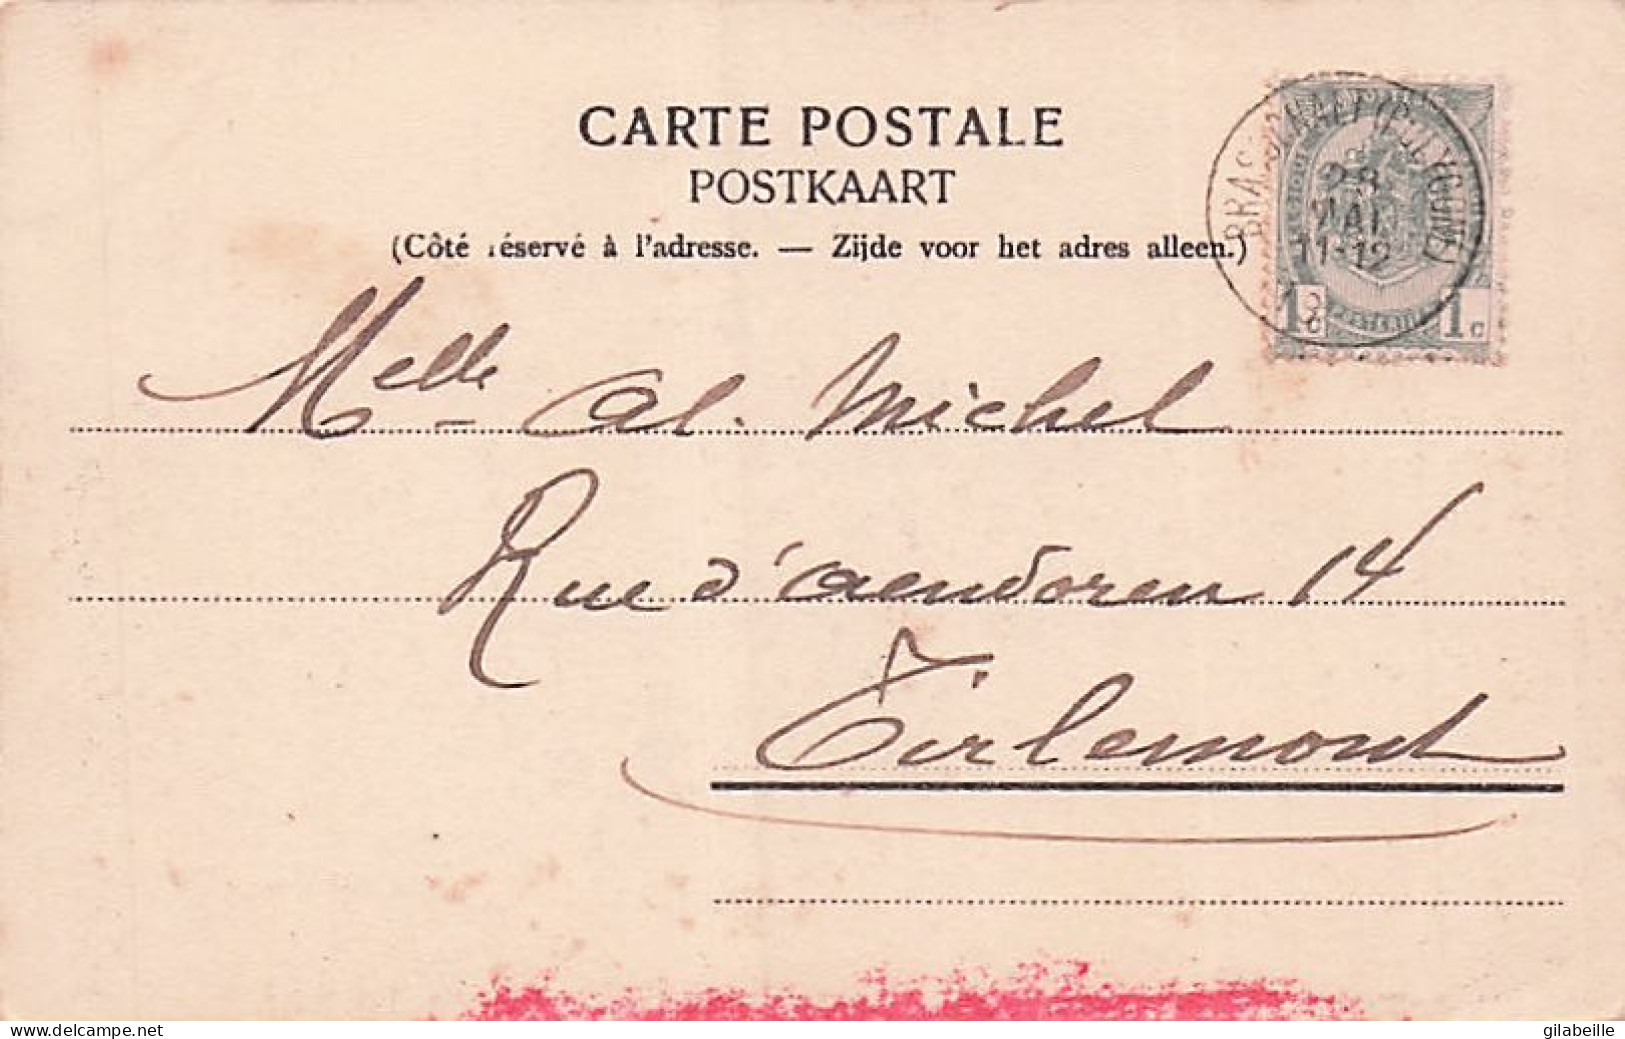 CARTE POSTALE
POSTKAART
(Côté réservé à l'adresse. — Zijde voor het adres alleen.)
BRASSCHAET (POLYGONE)
28
MAI
11-12
1c 1c
Melle Al. Michel
Rue d'aendoren 14
Tirlemont
delcampe.net
gilabeille